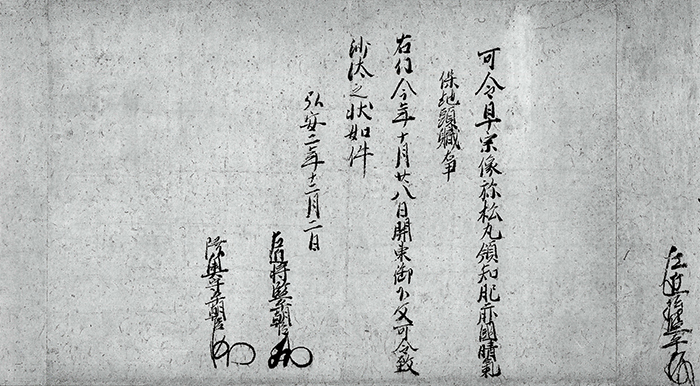 左近将監平
可令早宗像祢松丸領知肥前國晴氣
保地頭職事
右任今年十月廿八日關東御下文可令致
沙汰之状如件
弘安二年十二月二日
左近将監平朝臣
陸奥守平朝臣